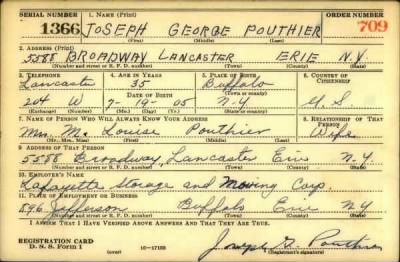 SERIAL NUMBER 1. NAME (Print) ORDER NUMBER
1366 JOSEPH GEORGE POUTHIER 709
(First) (Middle) (Last)
2. ADDRESS (Print)
5588 BROADWAY LANCASTER ERIE N.Y.
(Number and street or R. F. D. number) (Town) (County) (State)
3. TELEPHONE 4. AGE IN YEARS 5. PLACE OF BIRTH 6. COUNTRY OF CITIZENSHIP
Lancaster 35 Buffalo
DATE OF BIRTH (Town or county)
204 W 7-19-05 N-Y U.S.
(Exchange) (Number) (Mo.) (Day) (Yr.) (State or country)
7. NAME OF PERSON WHO WILL ALWAYS KNOW YOUR ADDRESS 8. RELATIONSHIP OF THAT PERSON
Mrs. M. Louise Pouthier Wife
(Mr., Mrs., Miss) (First) (Middle) (Last)
9. ADDRESS OF THAT PERSON
5588 Broadway, Lancaster Erie N-Y.
(Number and street or R. F. D. number) (Town) (County) (State)
10. EMPLOYER'S NAME
Lafayette Storage and Moving Corp.
11. PLACE OF EMPLOYMENT OR BUSINESS
896 Jefferson Buffalo Erie NY
(Number and street or R. F. D. number) (Town) (County) (State)
I AFFIRM THAT I HAVE VERIFIED ABOVE ANSWERS AND THAT THEY ARE TRUE.
REGISTRATION CARD
D. S. S. Form 1 (over) 16-17105 Joseph G. Pouthier
(Registrant's signature)